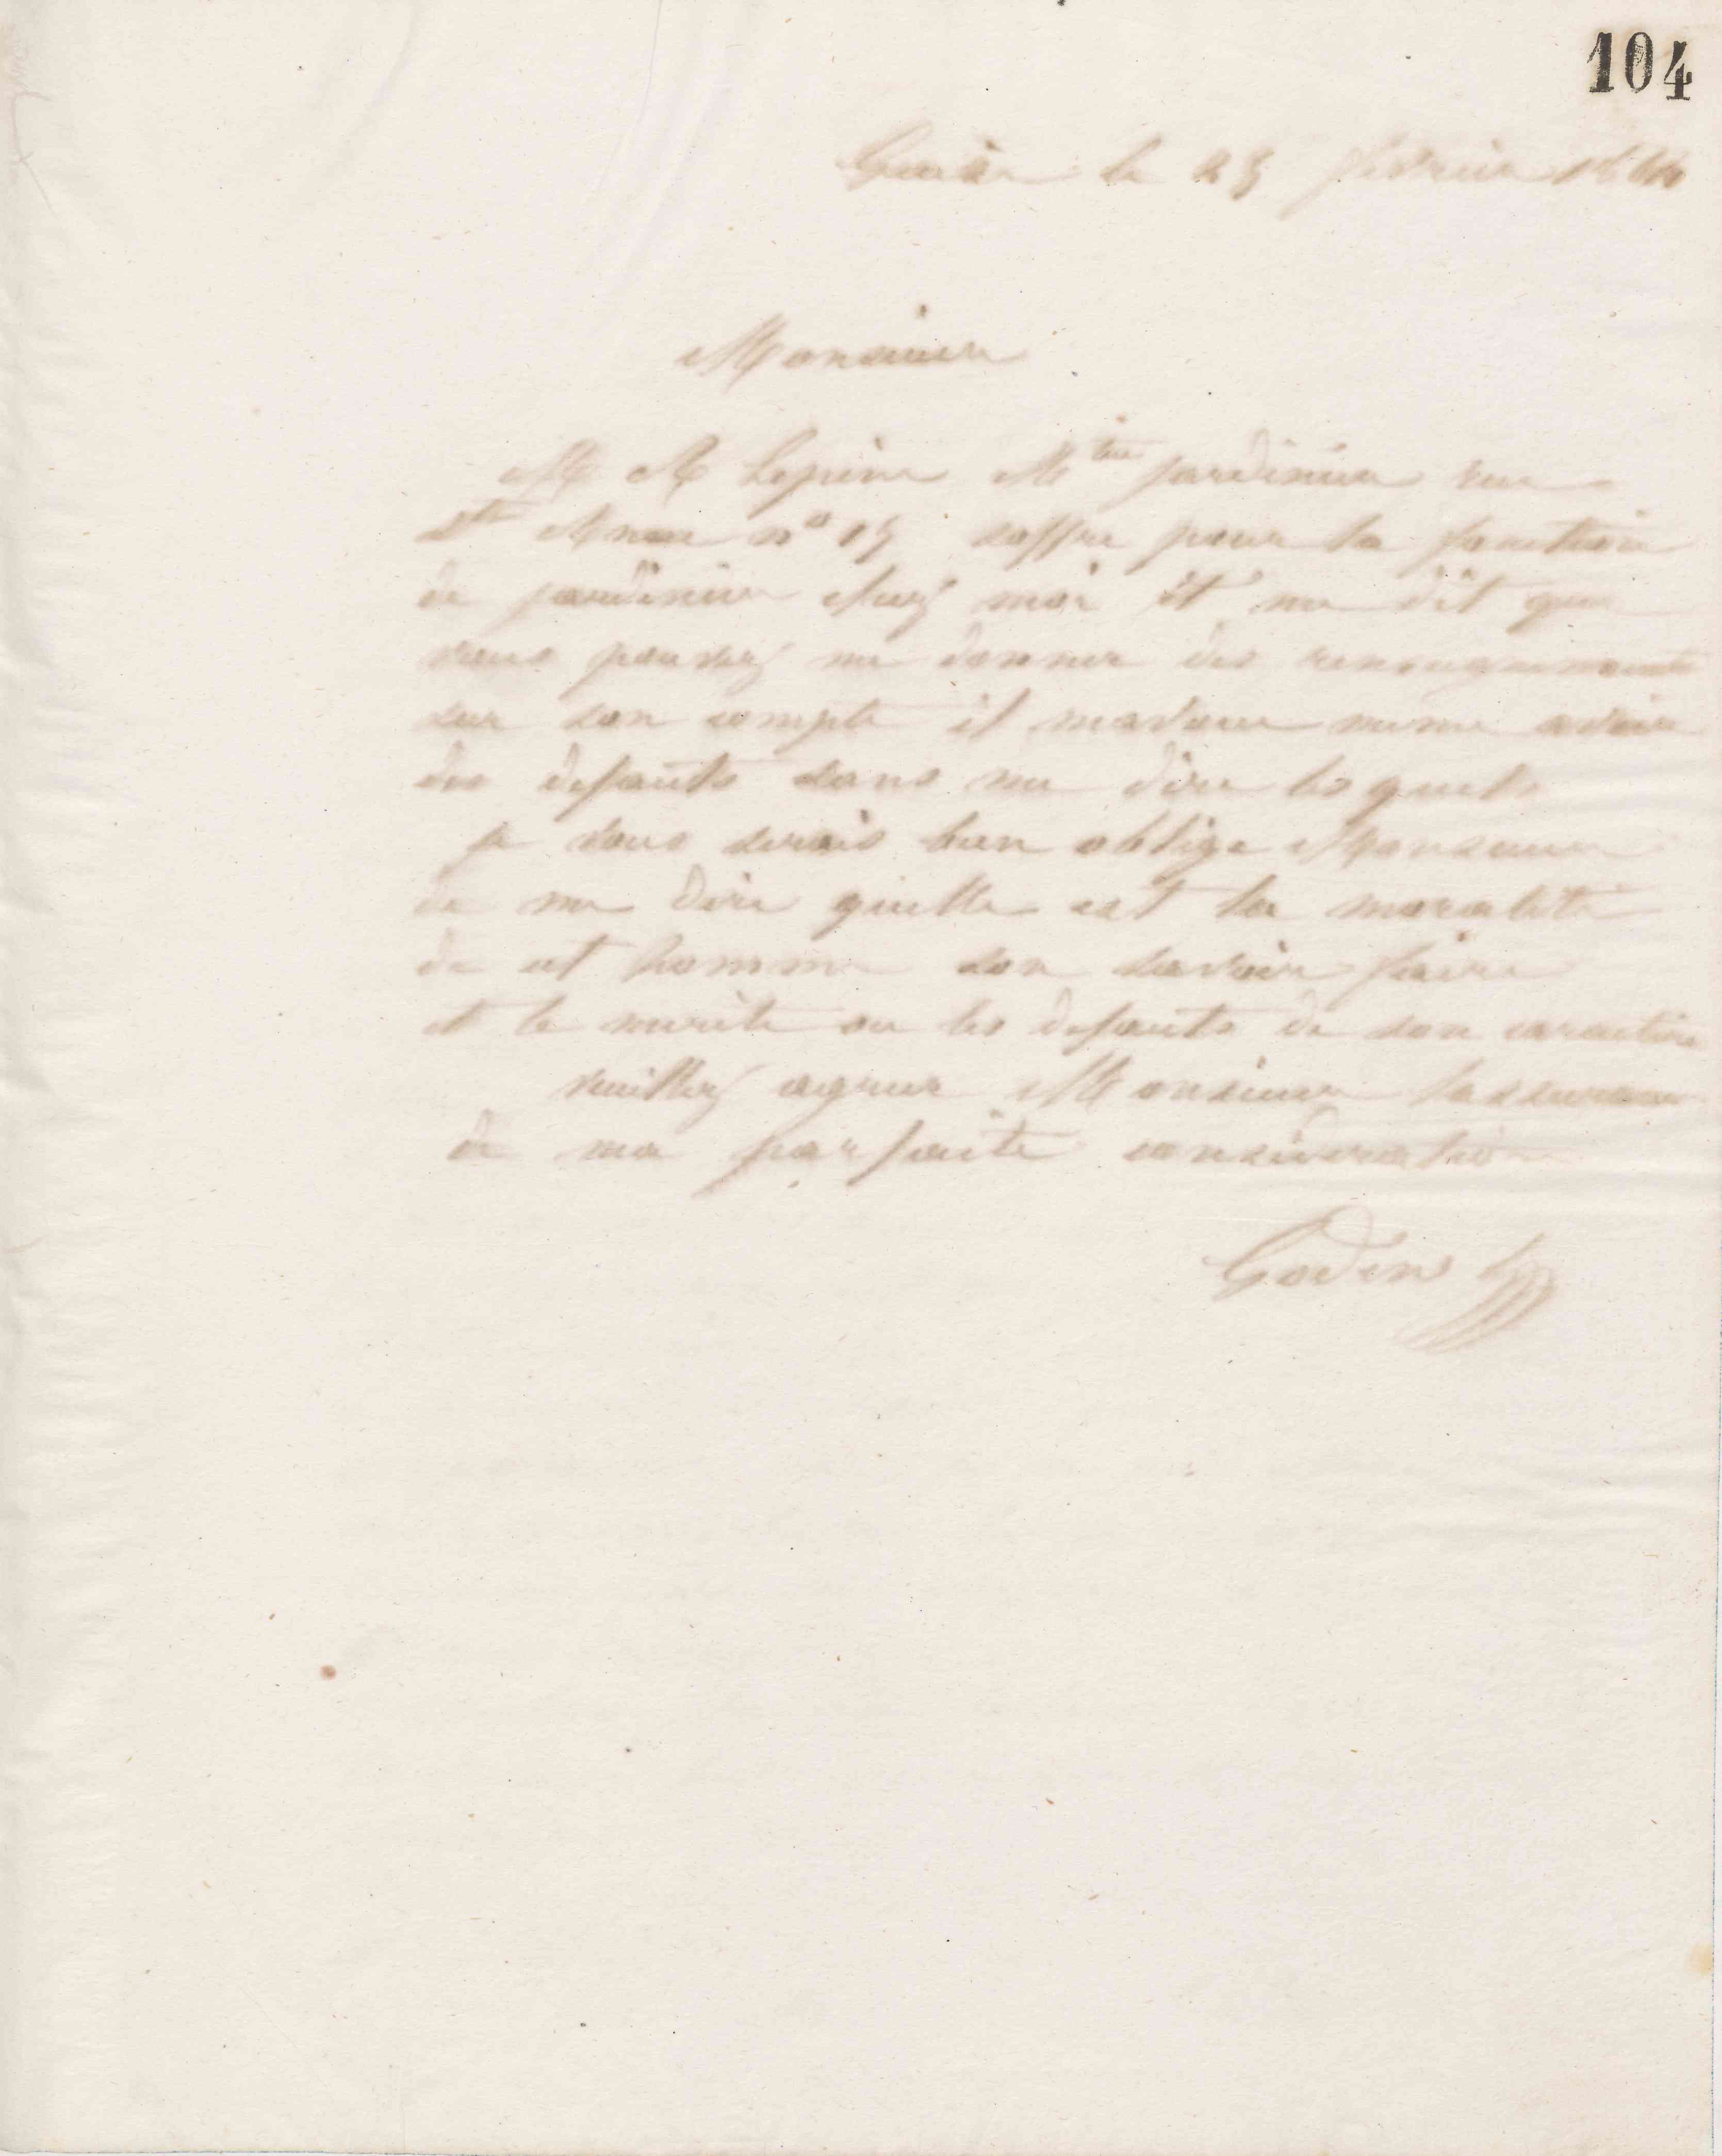 104
Guise le 25 février 1864
Monsieur
Lepine Mtre jardinier rue
Ste Anne n° 15 soffre pour la fonction
de jardinier chez moi et me dit que
vous pouvez me donner des renseignements
sur son compte il mavoue meme avoir
des defauts sans me dire lesquels
je vous serais bien oblige Monsieur
de me dire quelle est la moralité
de cet homme son savoir faire
et le merite ou les defauts de son caractère
veuillez agreer Monsieur lassurance
de ma parfaite consideration
Godin